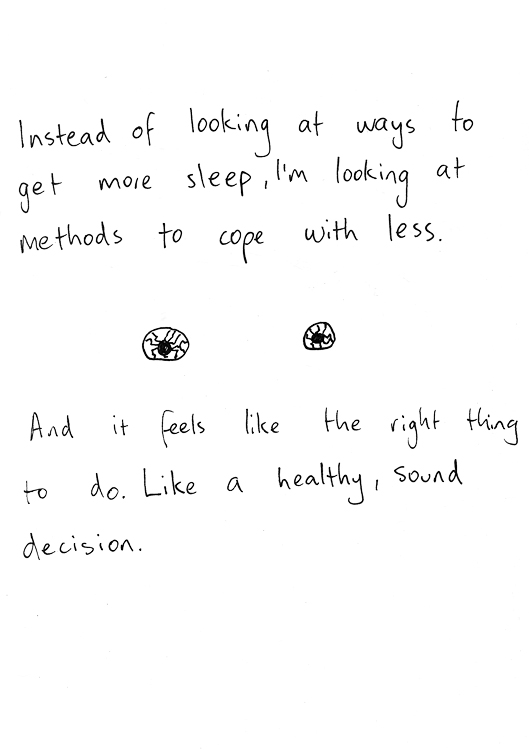 Instead of looking at ways to
get more sleep, I'm looking at
methods to cope with less.
And it feels like the right thing
to do. Like a healthy, sound
decision.